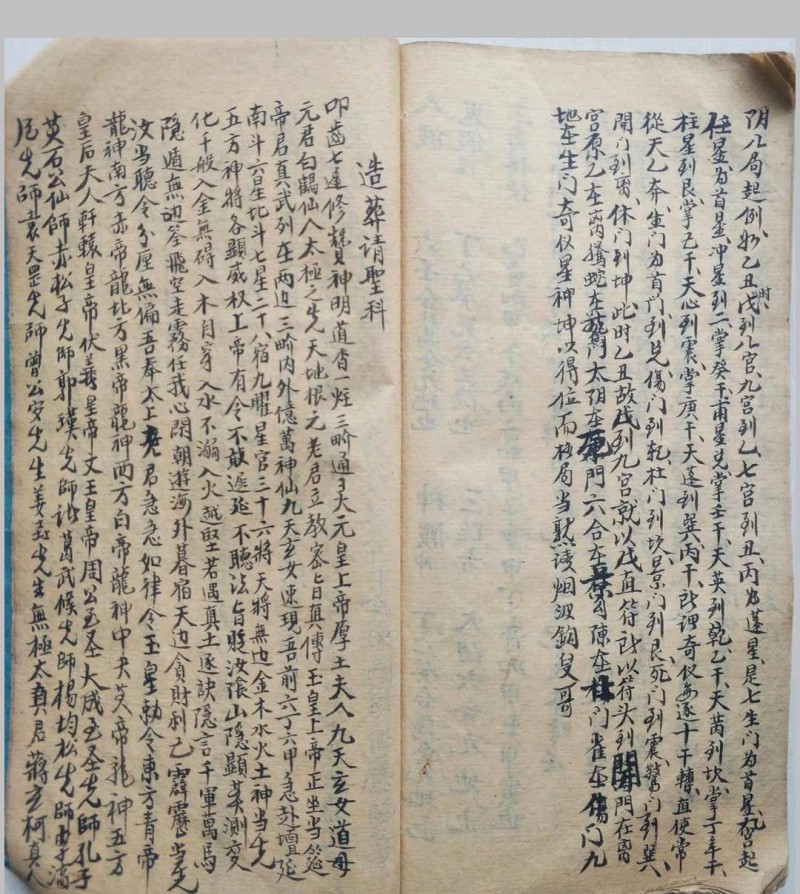 阴八局起例如乙丑时戊到八宫九宫到乙七宫到丑丙为蓬星是七生门为首星九宫起
任星为首星冲星到二掌癸干甫星兑掌壬干天英列乾乙干天芮列坎掌丁辛干
柱星到艮掌己干天心到震掌庚干天蓬到巽丙干此理奇仪每逐十干轉直使常
從天乙奔生门为首门到兑傷门到乾杜门到坎景门到艮死门到震驚门到巽
開门到离休门到坤此时乙丑故戊到九宫就以戊直符就以符头到開門在离
宫原乙在离騰蛇在驚門太阴在死門六合在景勾陳在杜門雀在傷门九
地在生门奇仪星神坤以得位而格局当熟读烟波鈎叟哥
造葬請聖科
叩齒七通修賛神明道香一炷三界通了天元皇上帝厚土夫人九天玄女道母
元君白鶴仙人太極之先天地根元老君立教密旨真傳玉皇上帝正坐当筵
帝君真武列在两边三界内外億萬神仙九天玄女速現吾前六丁六甲急赴壇筵
南斗六星北斗七星二十八宿九曜星官三十六將天將無边金木水火土神当先
五方神將各顯威权上帝有令不敢遲延不聽法旨貶汝陰山隱顯莫測变
化千般入金無碍入木自穿入水不溺入火越堅若遇真土逐訣隱言千軍萬馬
隱遁無边筌飛空走霧任我心閑朝遊海外暮宿天边貪財利己霹靂当先
汝当聽令分厘無偏吾奉太上老君急急如律令玉皇勅令東方青帝
龍神南方赤帝龍北方黑帝龍神西方白帝龍神中央黄帝龍神五方
皇后夫人軒轅皇帝伏羲皇帝文王皇帝周公至圣大成至圣先師孔子
黄石公仙師赤松子先師郭璞先師諸葛武候先師楊均松先師李淳
风先師袁天罡先師曾公安先生姜孟先生無極太真君蔣玄柯真人